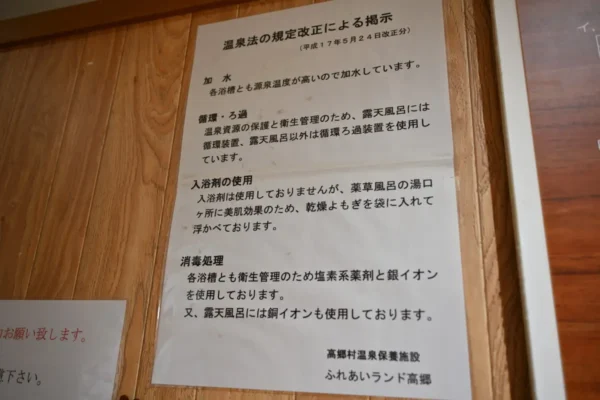 温泉法の規定改正による掲示
（平成１７年５月２４日改正分）
加　水
各浴槽とも源泉温度が高いので加水しています。
循環・ろ過
温泉資源の保護と衛生管理のため、露天風呂には
循環装置、露天風呂以外は循環ろ過装置を使用し
ています。
入浴剤の使用
入浴剤は使用しておりませんが、薬草風呂の湯口
ヶ所に美肌効果のため、乾燥よもぎを袋に入れて
浮かべております。
消毒処理
各浴槽とも衛生管理のため塩素系薬剤と銀イオン
を使用しております。
又、露天風呂には銅イオンも使用しております。
高郷村温泉保養施設
ふれあいランド高郷
お願い致します。
下さい。
イ．